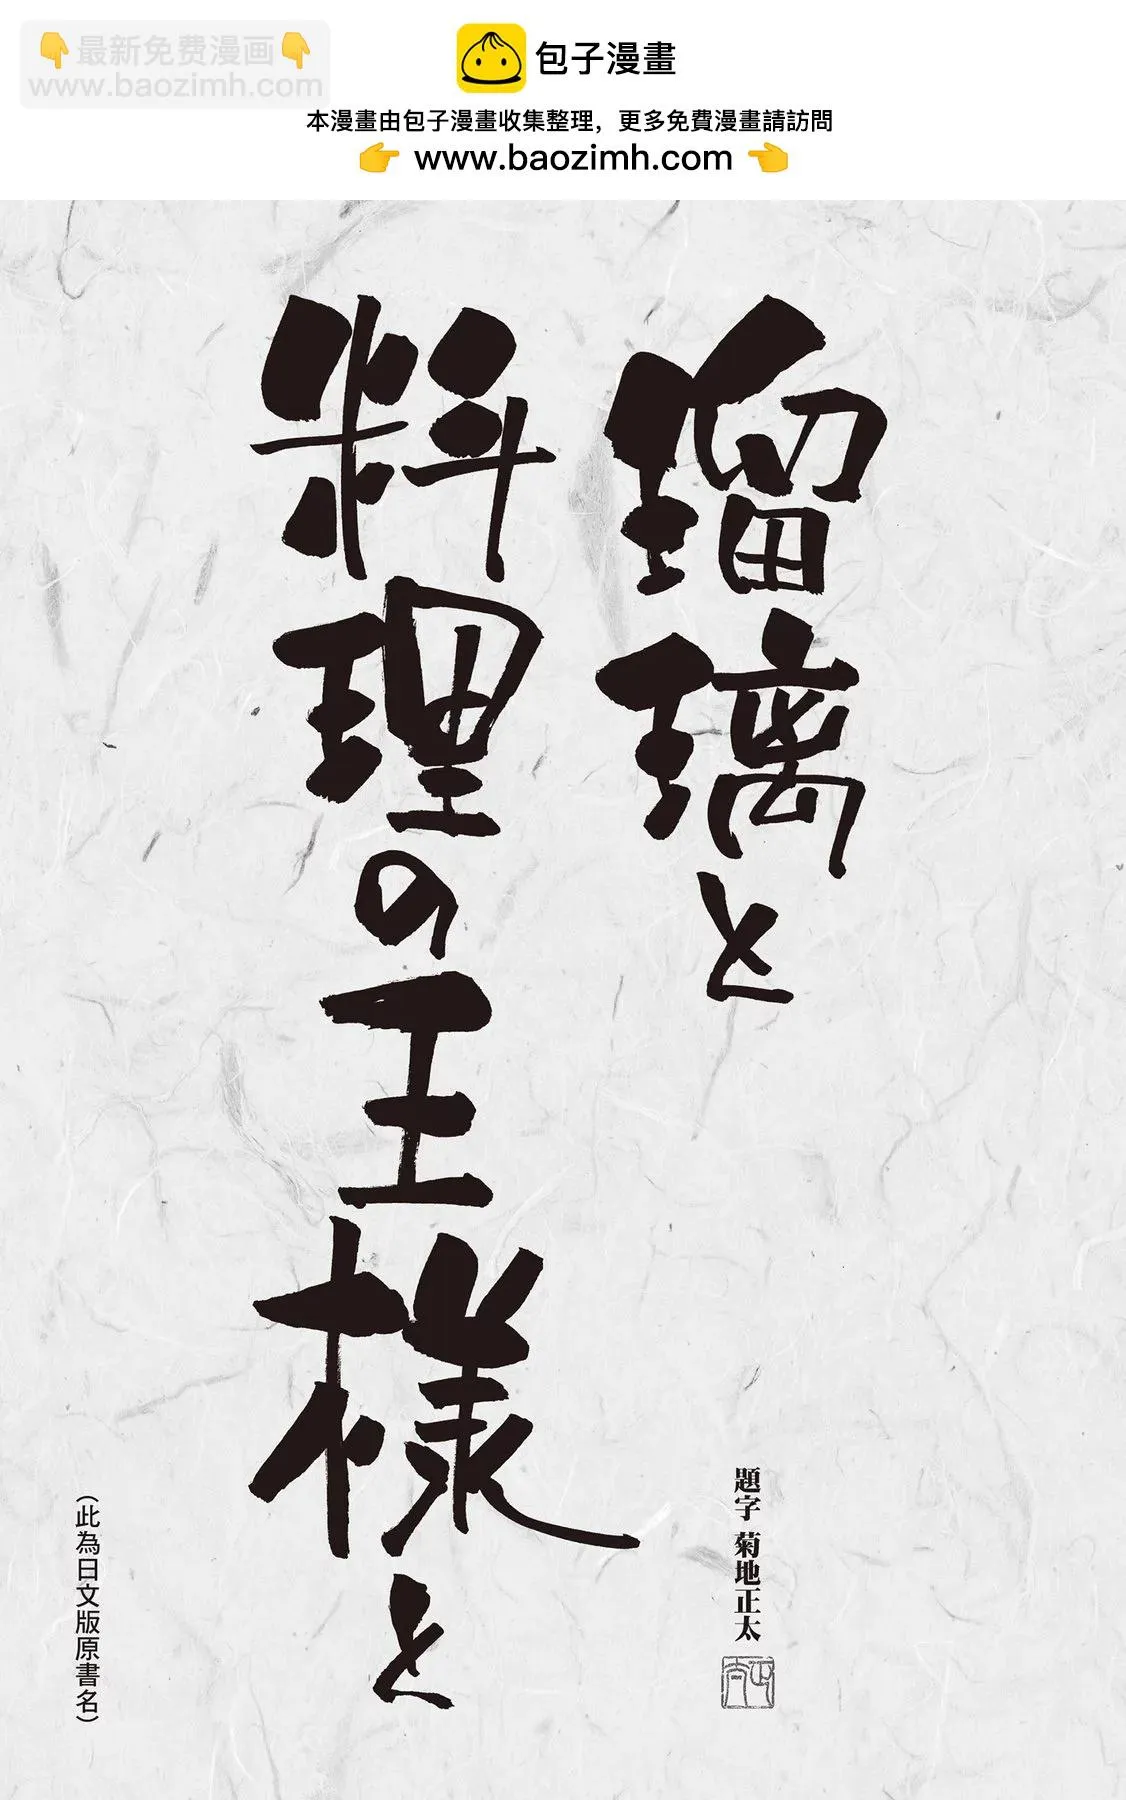 👇最新免费漫画👇
www.baozimh.com
包子漫畫
本漫畫由包子漫畫收集整理，更多免費漫畫請訪問
👉 www.baozimh.com 👈
瑠璃と
料理の王様と
題字 菊地正太
（此為日文版原書名）